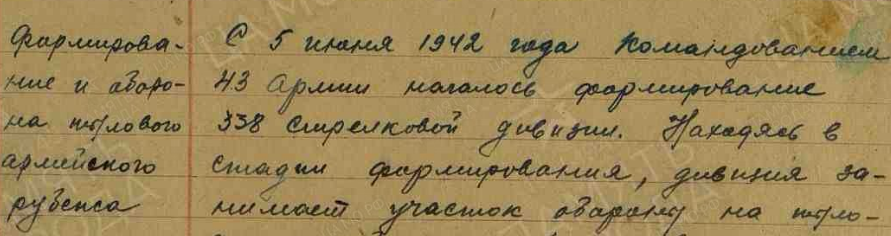 Формирова-
ние и оборо-
на тылового
армейского
рубежа
С 5 июня 1942 года командованием
43 Армии началось формирование
338 стрелковой дивизии. Находясь в
стадии формирования, дивизия за-
нимает участок обороны на тыло-